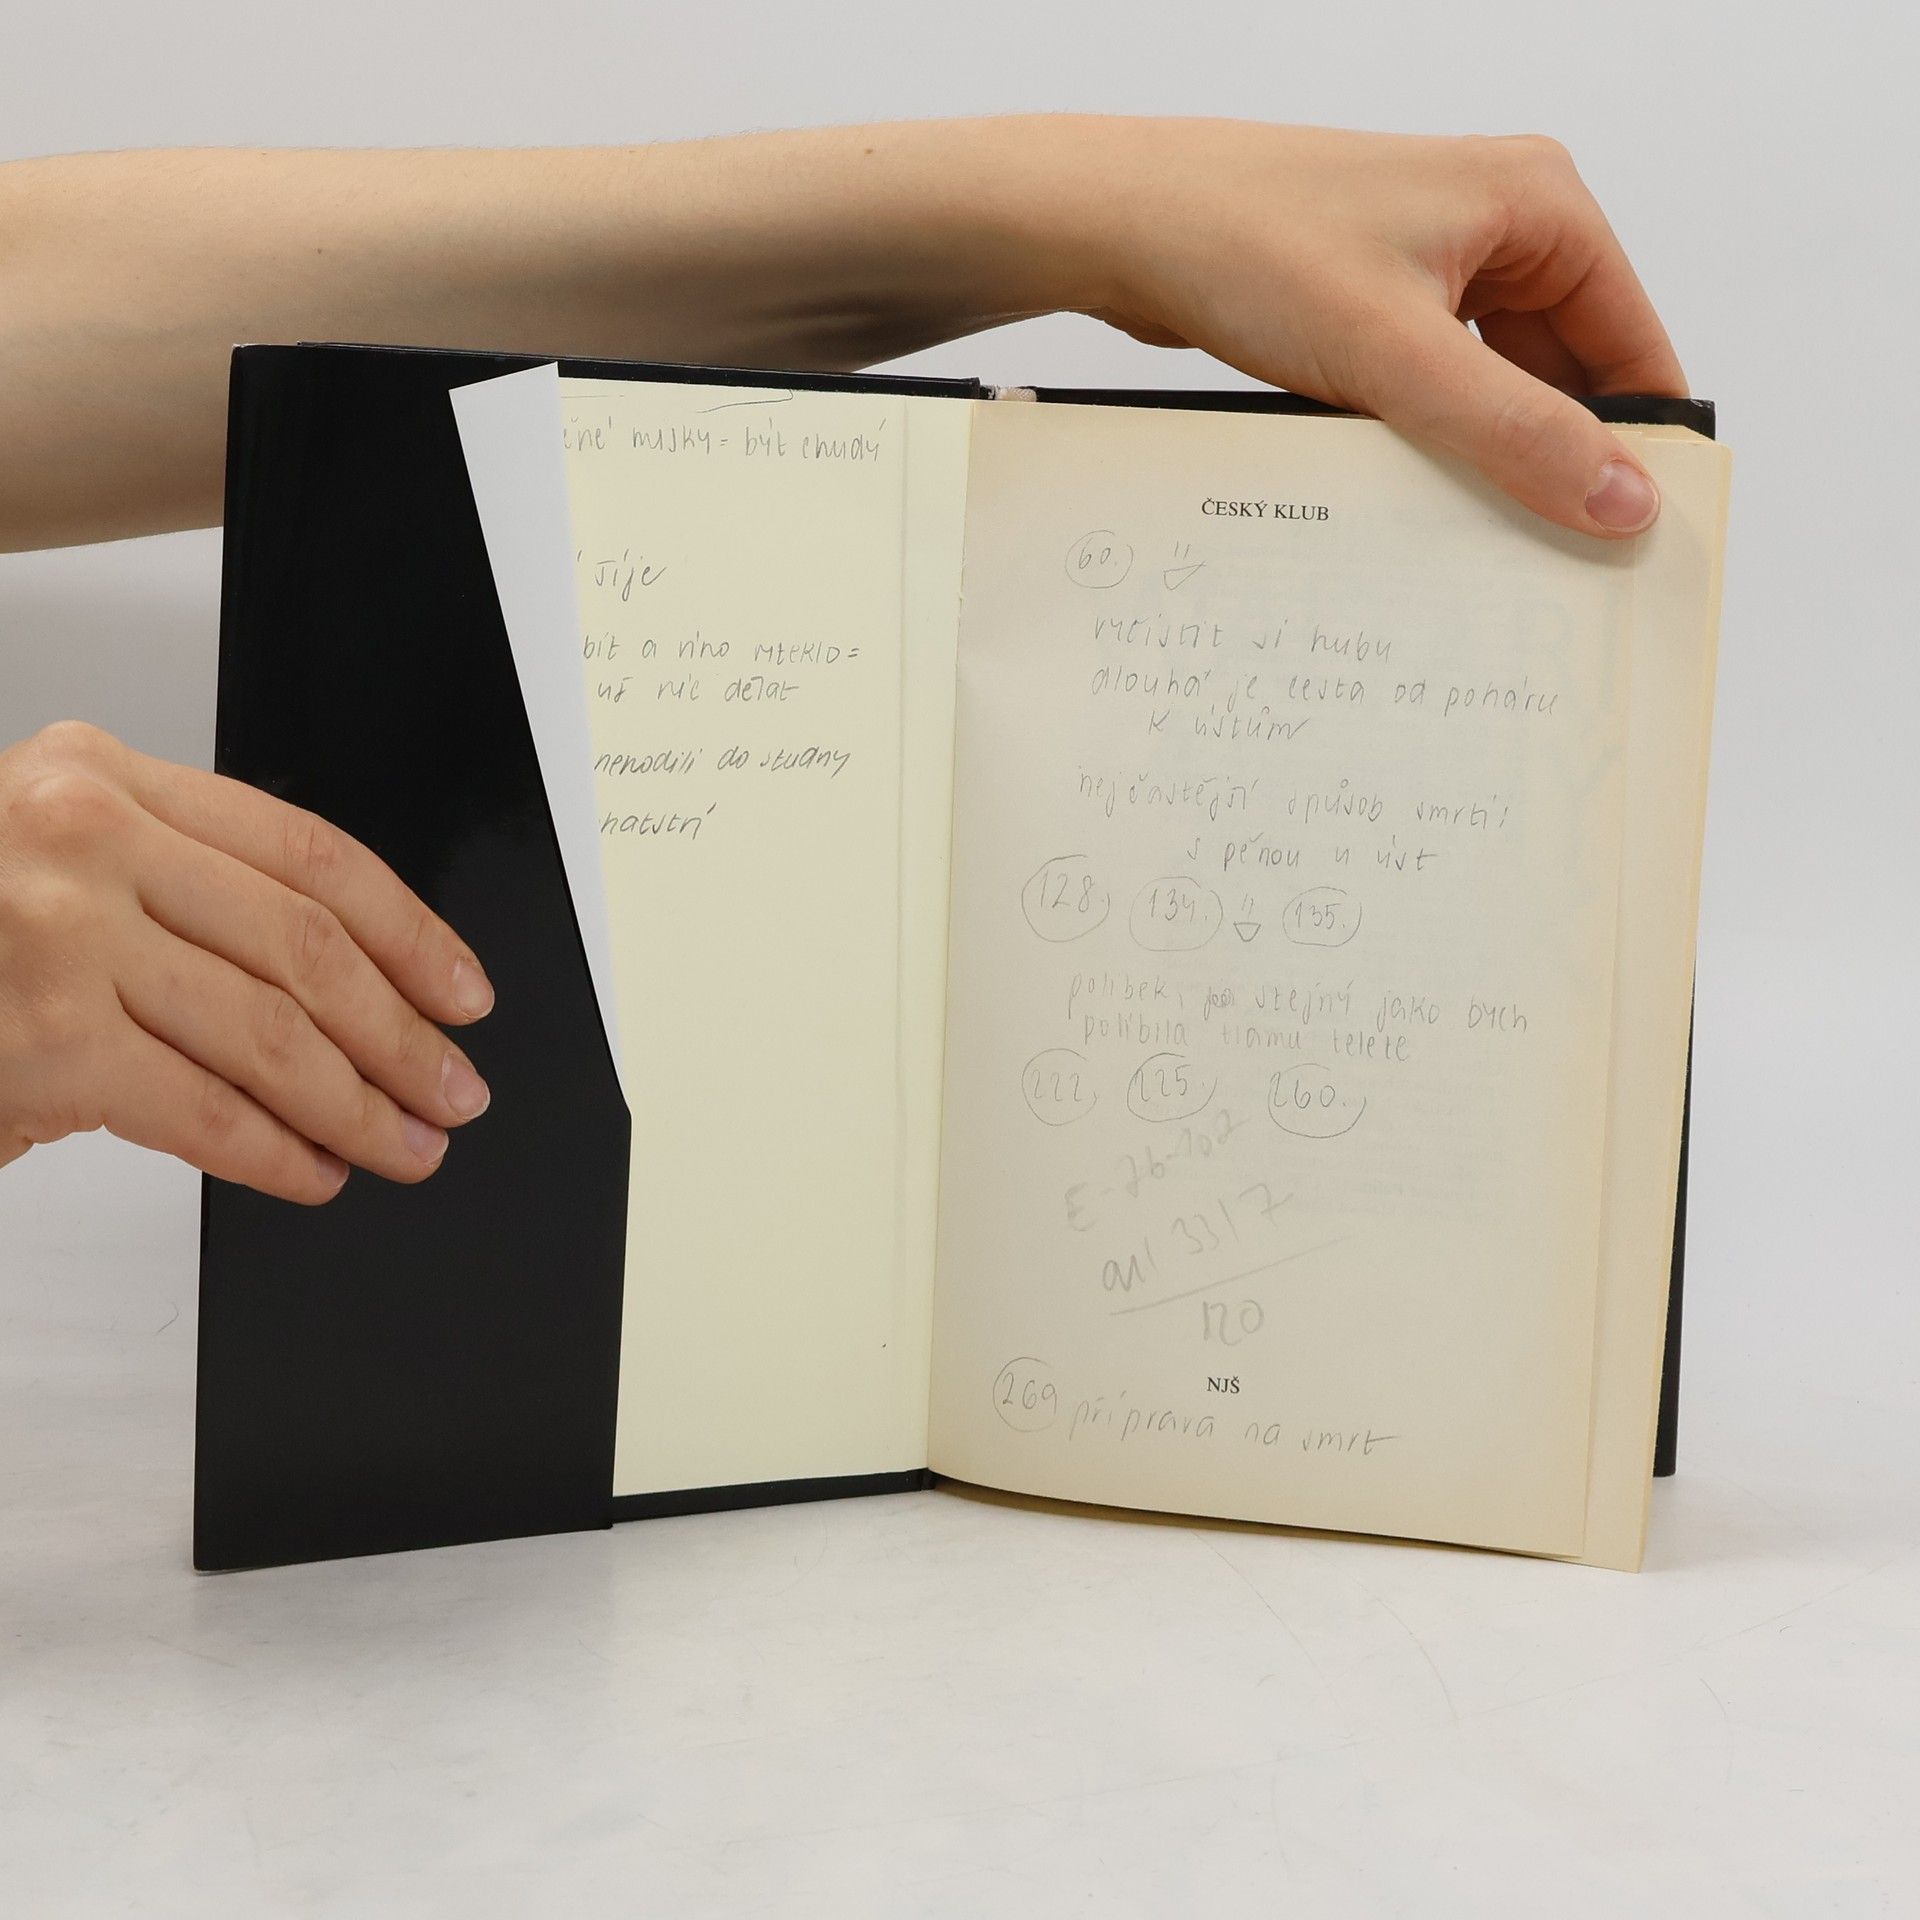 misky = být chudý
šíje
bít a víno vteklo =
už nic dělat
nehodili do studny
ČESKÝ KLUB
60.
vyčistit si hubu
dlouhá je cesta od poháru
k ústům
nejčastější způsob smrti:
s pěnou u úst
128. 134. 135.
polibek, stejný jako bych
políbila tlamu telete
222. 225. 260.
E-26-102
33/7
120
NJŠ
269 příprava na smrt